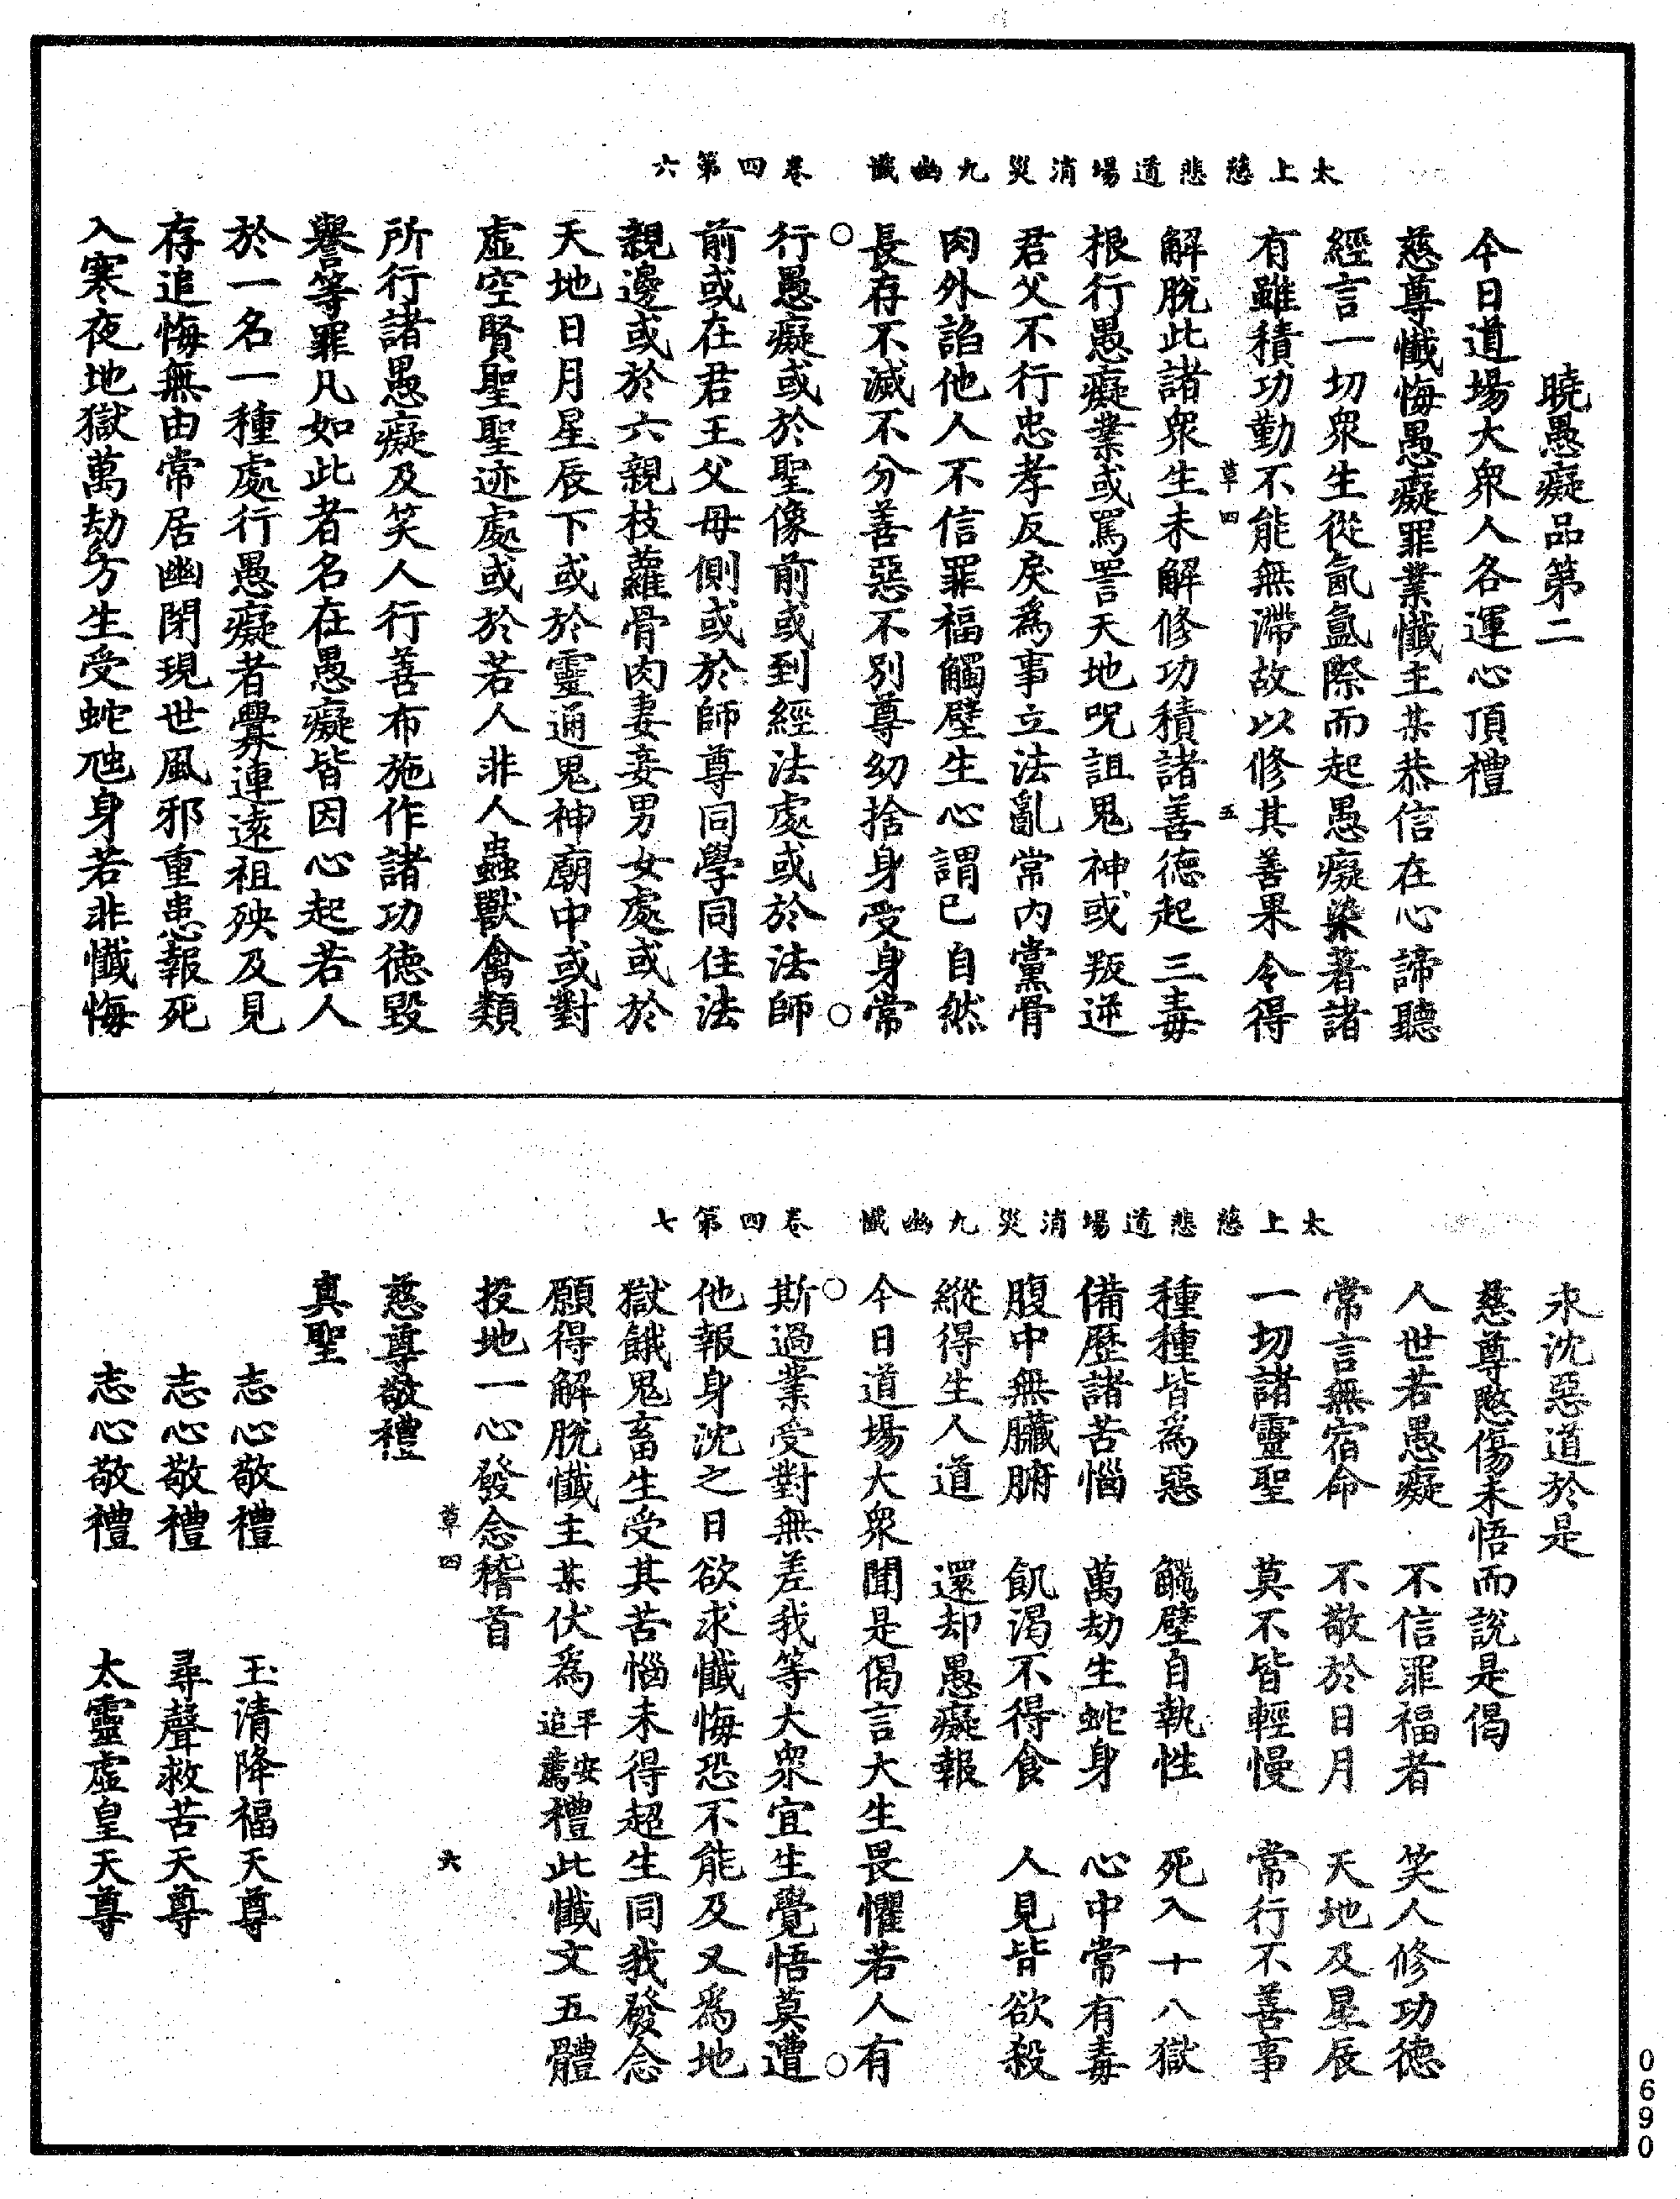 太上慈悲道場消災九幽懺　卷四第六
曉愚癡品第二
今日道場大衆人各運心頂禮
慈尊懺悔愚癡罪業懺主某恭信在心諦聽
經言一切衆生從氤氳際而起愚癡染著諸
有雖積功勤不能無滯故以修其善果令得
草四　五
解脫此諸衆生未解修功積諸善德起三毒
根行愚癡業或罵詈天地呪詛鬼神或叛逆
君父不行忠孝反戾爲事立法亂常內黨骨
肉外諂他人不信罪福觸壁生心謂已自然
長存不滅不分善惡不別尊幼捨身受身常
行愚癡或於聖像前或到經法處或於法師
前或在君王父母側或於師尊同學同住法
親邊或於六親枝蘿骨肉妻妾男女處或於
天地日月星辰下或於靈通鬼神廟中或對
虛空賢聖聖迹處或於若人非人蟲獸禽類
所行諸愚癡及笑人行善布施作諸功德毀
譽等罪凡如此者名在愚癡皆因心起若人
於一名一種處行愚癡者釁連遠祖殃及見
存追悔無由常居幽閉現世風邪重患報死
入寒夜地獄萬劫方生受蛇虺身若非懺悔
太上慈悲道場消災九幽懺　卷四第七
永沈惡道於是
慈尊愍傷未悟而說是偈
人世若愚癡　不信罪福者　笑人修功德
常言無宿命　不敬於日月　天地及星辰
一切諸靈聖　莫不皆輕慢　常行不善事
種種皆爲惡　觸壁自執性　死入十八獄
備歷諸苦惱　萬劫生蛇身　心中常有毒
腹中無臟腑　飢渴不得食　人見皆欲殺
縱得生人道　還却愚癡報
今日道場大衆聞是偈言大生畏懼若人有
斯過業受對無差我等大衆宜生覺悟莫遭
他報身沈之日欲求懺悔恐不能及又爲地
獄餓鬼畜生受其苦惱未得超生同我發念
願得解脫懺主某伏爲平安追薦禮此懺文五體
投地一心發念稽首
草四　六
慈尊敬禮
真聖
志心敬禮　玉清降福天尊
志心敬禮　尋聲救苦天尊
志心敬禮　太靈虛皇天尊
0690